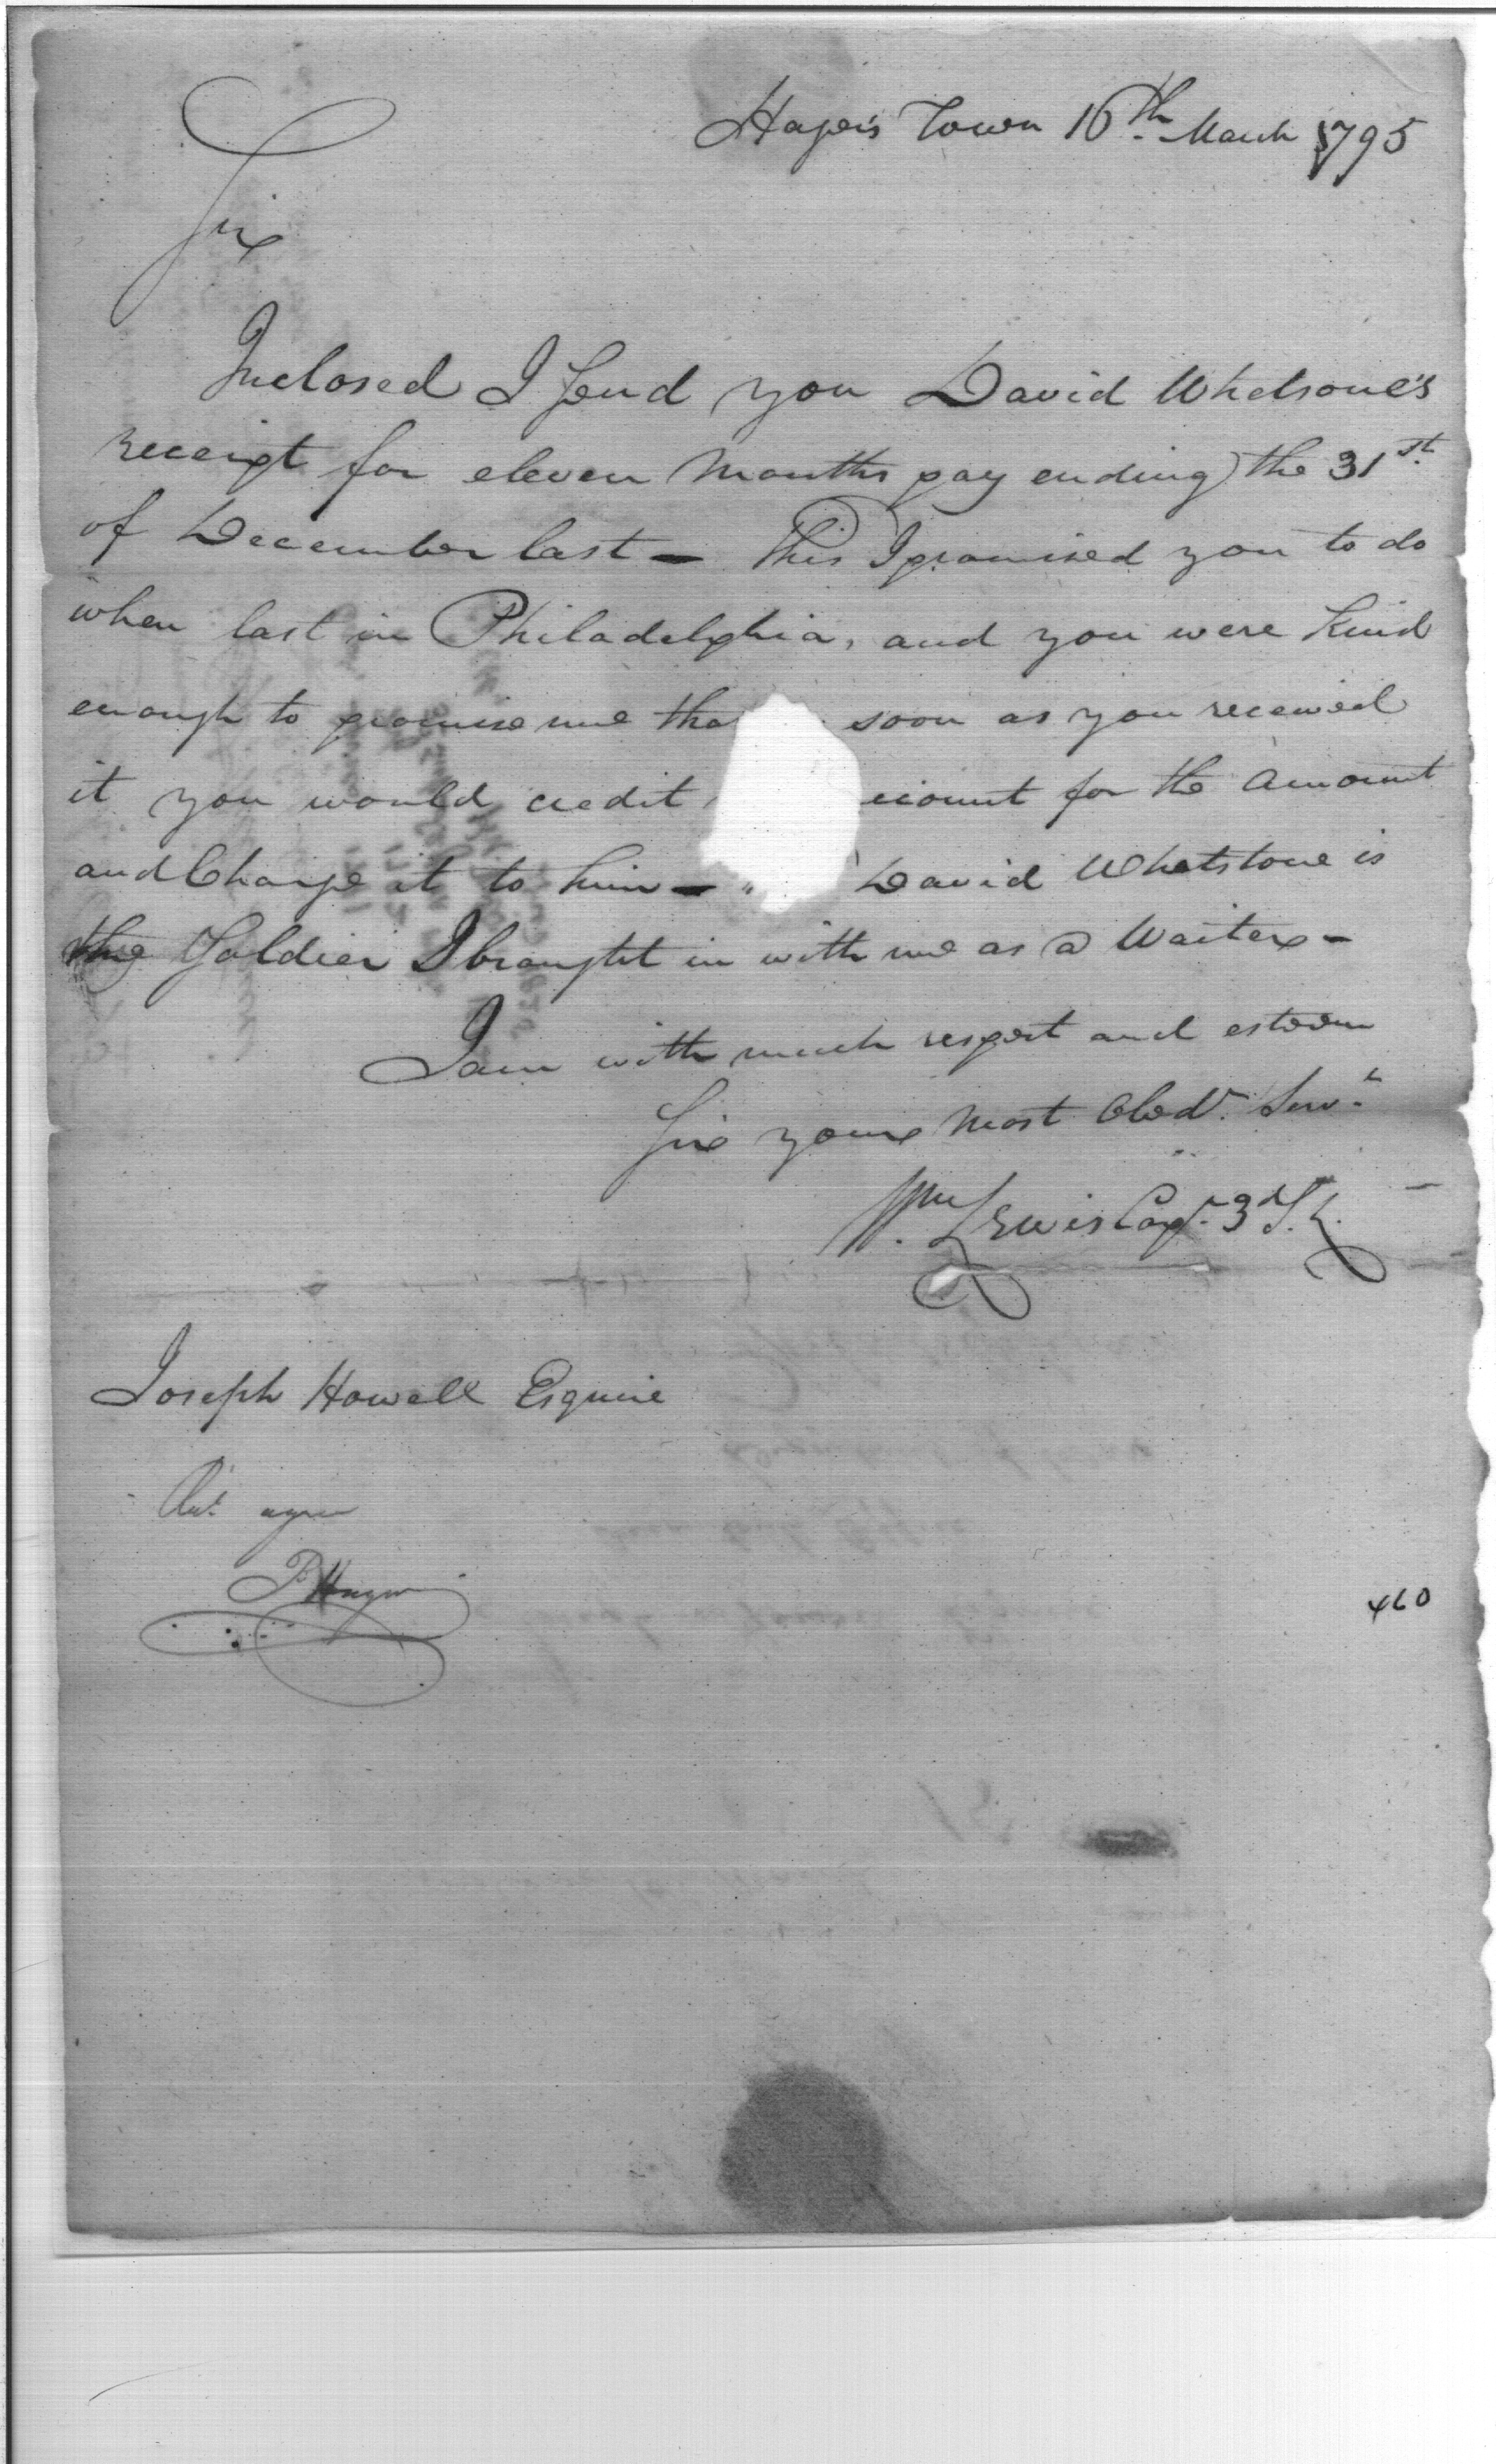 Hager's Town 16th. March 1795
Sir
Inclosed I send you David Whetsone's
receipt for eleven Months pay ending the 31st.
of December last - This I promised you to do
when last in Philadelphia, and you were kind
enough to promise me tha soon as you received
it you would credit ccount for the amount
and Charge it to him - David Whetstone is
the Soldier I brought in with me as a Waiter -
I am with much respect and esteem
Sir your most Obedt. Servt.
Wm. Lewis Capt. 3d S. L.
Joseph Howell Esquire
agree
460